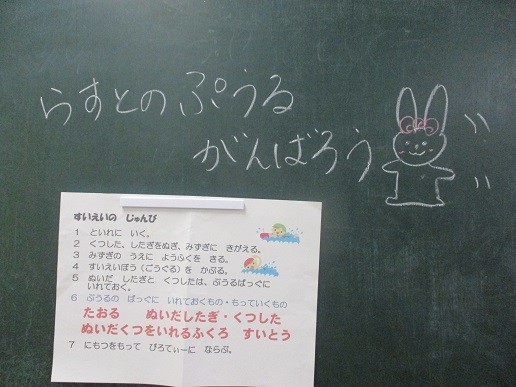 らすとのぷうる
がんばろう
すいえいの じゅんび
1 といれに いく。
2 くつした、したぎをぬぎ、みずぎに きがえる。
3 みずぎの うえに ようふくを きる。
4 すいえいぼう(ごうぐる)を かぶる。
5 ぬいだ したぎと くつしたは、ぷうるばっぐに
いれておく。
6 ぷうるの ばっぐに いれておくもの・もっていくもの
たおる ぬいだしたぎ・くつした
ぬいだくつをいれるふくろ すいとう
7 にもつをもって ぴろてぃーに ならぶ。